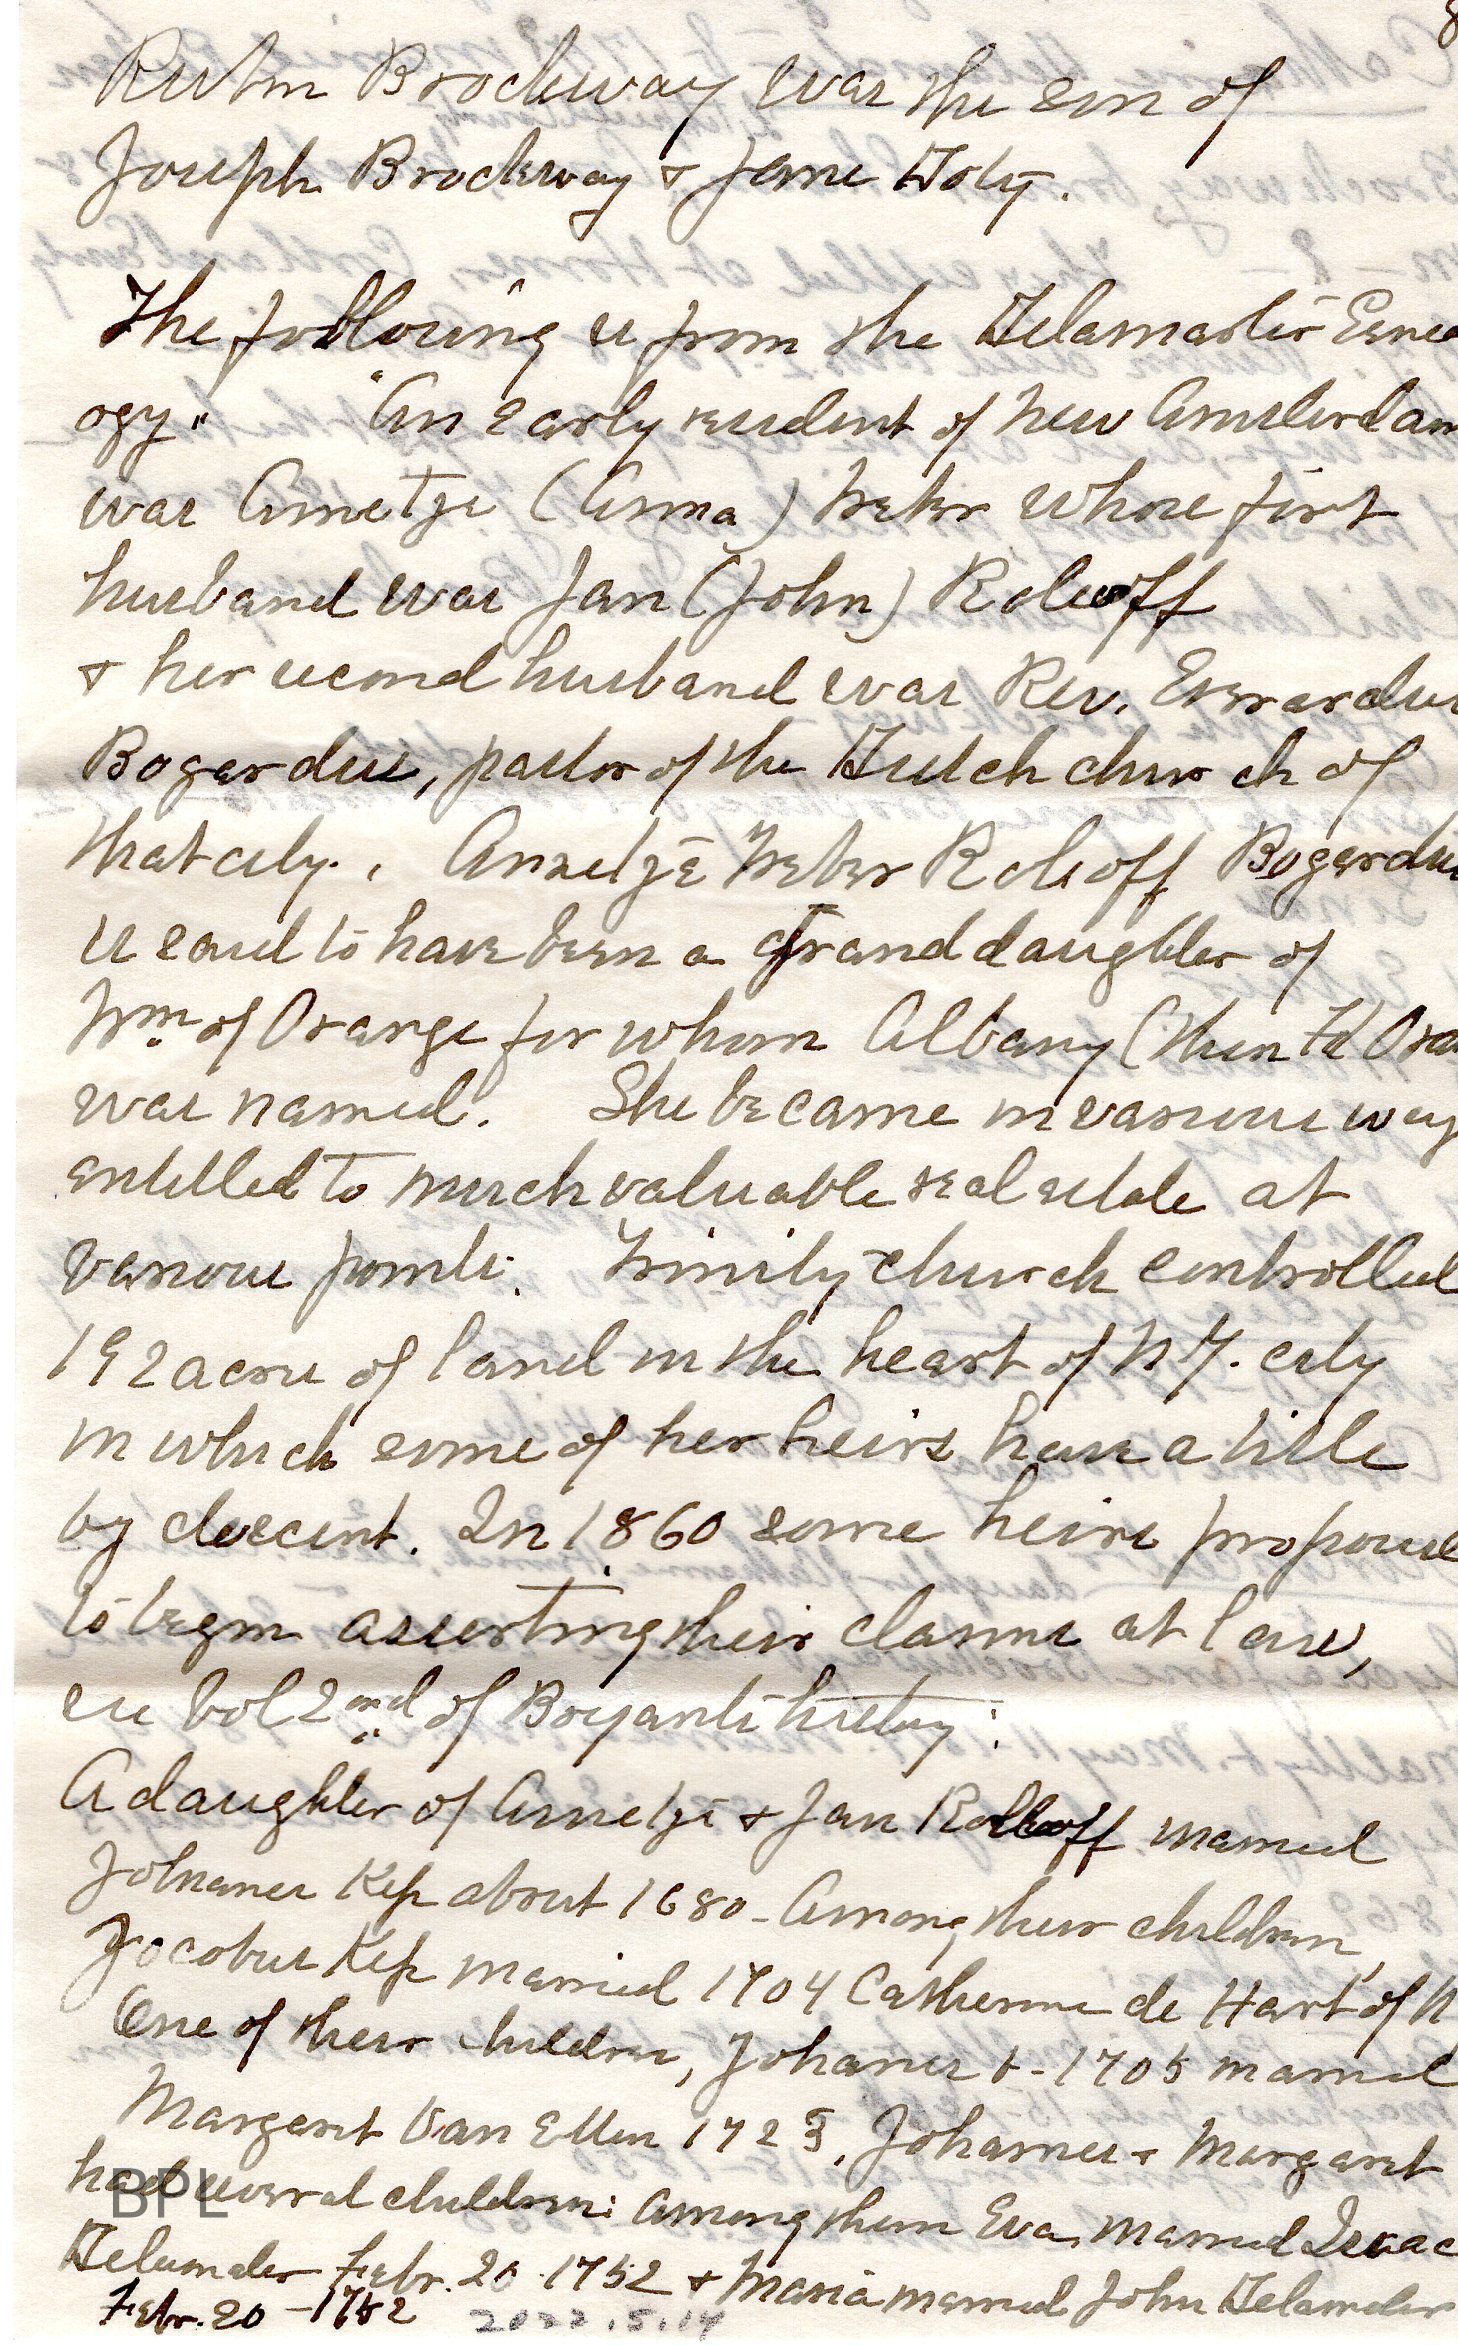 8
Rubin Brockway was the son of
Joseph Brockway & Jane Doty.
The following is from the Delamater Genea
ogy" "An early resident of New Amsterdam
was Annetje (Anna) Weber whose first
husband was Jan (John) Roleoff
& her second husband was Rev. Everardus
Bogardus, pastor of the Dutch church of
that city. Annetje Weber Roleoff Bogardus
is said to have been a Granddaughter of
Wm. of Orange for whom Albany (then Ft Ora
was named. She became in various way
entitled to much valuable real estate at
various points. Trinity church controlled
192 acres of land in the heart of N Y. city
in which some of her heirs have a title
by descent. In 1860 some heirs proposed
to begin asserting their claims at law,
see Vol 2nd of Bryants history.
A daughter of Annetje & Jan Roleoff married
Johanes Kip about 1680 - Among their children,
Jocobus Kip married 1704 Catherine de Hart of N
One of their children, Johanes b - 1705 married
Margaret Van Etten 1725, Johannes & Margaret
had several children: among them Eva married Isaac
Delamater Febr. 20 1752 & Maria married John Delamater
Febr. 20 - 1752
2022.5.14
BPL